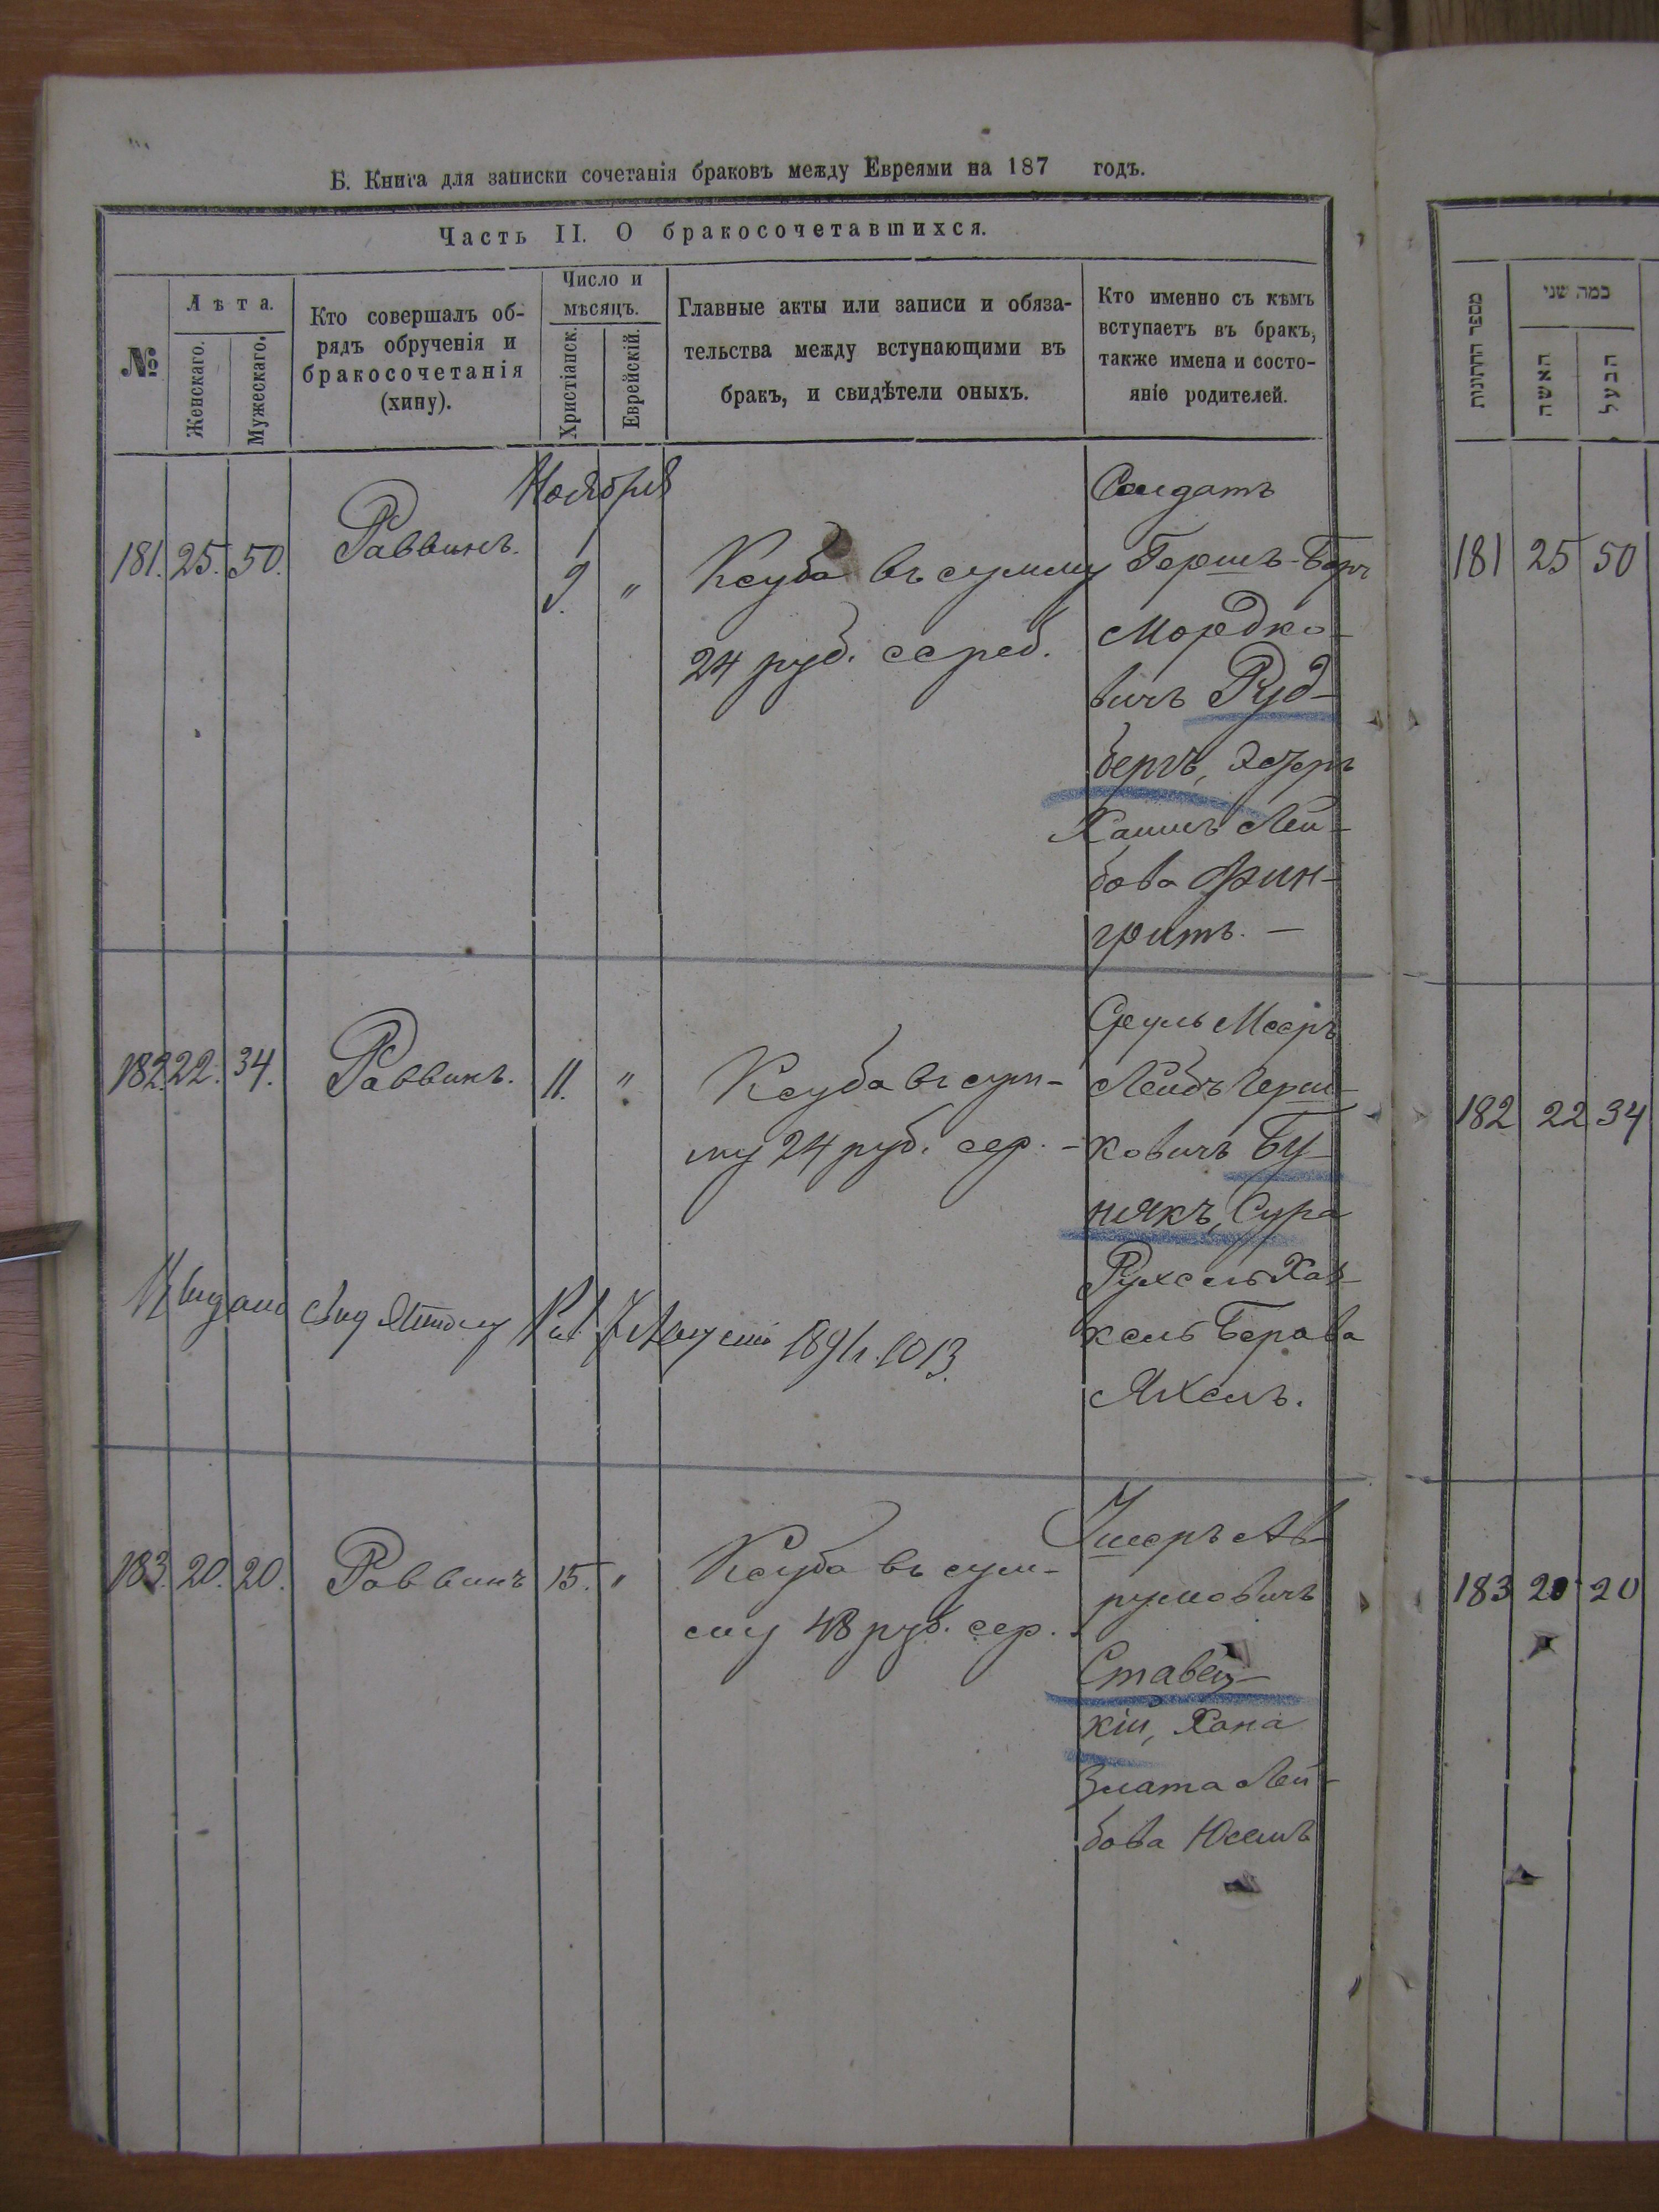 Б. Книга для записки сочетанія браковъ между Евреями на 187 годъ.
Часть II. О бракосочетавшихся.
№
Лѣта.
Женскаго.
Мужескаго.
Кто совершалъ об-
рядъ обрученія и
бракосочетанія
(хипу).
Число и
мѣсяцъ.
Христіанск.
Еврейскій.
Главные акты или записи и обяза-
тельства между вступающими въ
бракъ, и свидѣтели оныхъ.
Кто именно съ кѣмъ
вступаетъ въ бракъ,
также имена и состо-
яніе родителей.
Ноября
181. 25. 50. Раввинъ. 9. "
Ксуба въ сумму
24 руб. сереб.
Солдатъ
Гершъ-Беръ
Мордко-
вичъ Руд-
бергъ, Эстеръ
Лей-
бова Фин-
гритъ. —
182. 22. 34. Раввинъ. 11. "
Ксуба въ сум-
му 24 руб. сер. -
Сруль Мееръ
Лейбъ Герш-
ковичъ Бу-
някъ, Сура
Рухель Хас-
кель Берова
183. 20. 20. Раввинъ 15. "
Ксуба въ сум-
му 48 руб. сер.
Ушеръ Ав-
румовичъ
Ставец-
кій, Хана
Злата Лей-
бова
מספר החתונות
כמה שני
האשה
הבעל
181 25 50
182 22 34
183 20 20